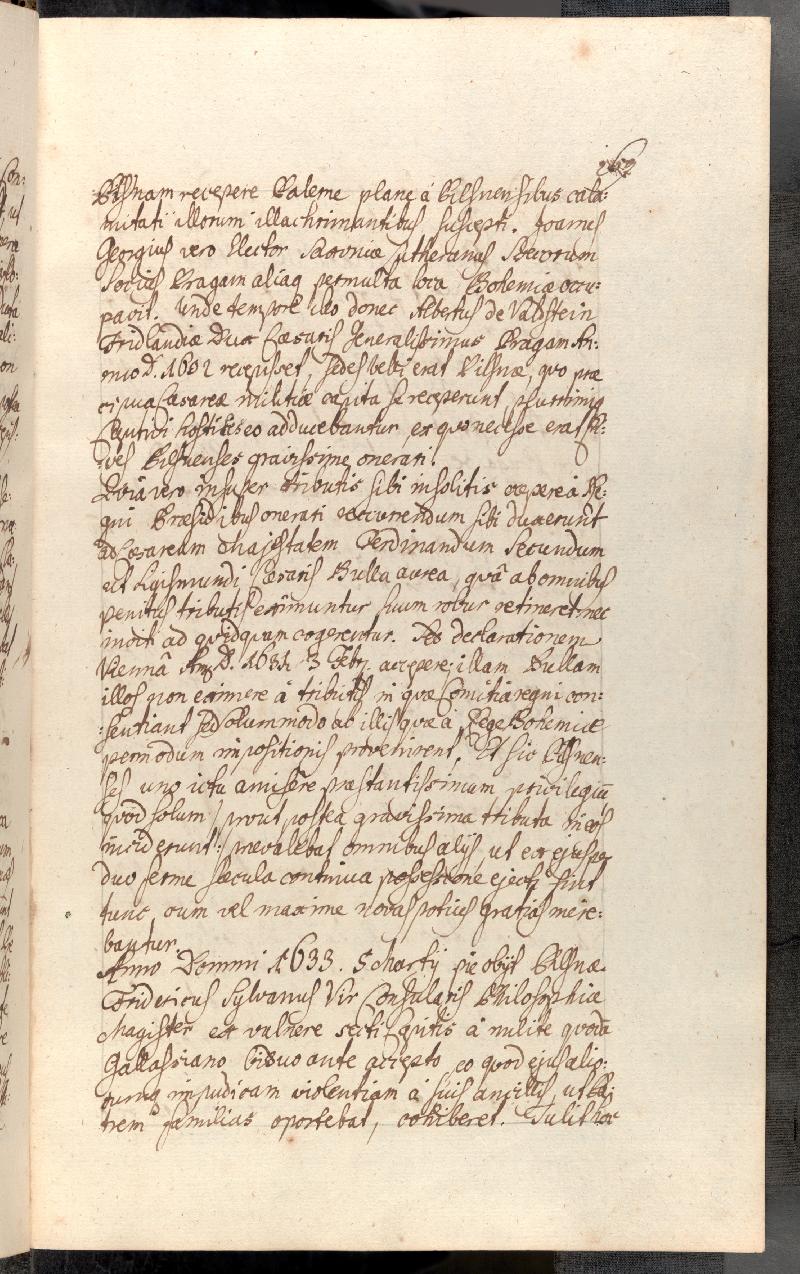 162
Pilsnam recepere Paleme plane á Pilsnensibus cala:
mitati illorum illachrimantibus suscepti. Joannes
Georgius vero Elector Saxoniæ Lutheranus Suecorum
Socius Pragam aliaq permulta loca Bohemiæ occu:
pavit. Unde tempore illo donec Albertus de Valdstein
Fridlandiæ Dux Cæsaris Generalissimus Pragam An:
nno D. 1632 recepisset, Sedes belli erat Pilsnæ, quo præ
cipua Cæsareæ militiæ capita se receperunt plurimiq
Captivi hostiles eo adducebantur, ex quo necesse erat Ci:
ves Pilsnenses gravissime onerari.
Quia vero insuper tributis sibi insolitis cæpere à Re:
gni Præsidibus onerari recurrendum sibi duxerunt
ad Cæsaream Majestatem Ferdinandum Secundum
ut Sigismundi Cæsaris Bulla aurea, quâ ab omnibus
penitus tributis eximuntur suum robur retineret nec
inviti ad quidquam cogerentur. Ast declarationem
Viennâ Anno D. 1631 3 Feby. accepere; illam Bullam
illos non eximere á tributis in quæ Comitia regni con:
:sentiant sed solummodo ab illis quæ à Rege Bohemiæ
per modum impositionis provenirent. Et sic Pilsnen:
ses uno ictu amisêre præstantissimum privilegiū
quod solum / prout postea gravissima tributa in eos
inciderunt: prævalebat omnibus alijs, ut ex ejus per
duo ferme sæcula continua possessione ejecti sint
tunc, cum vel maxime novas potius gratias mere:
bantur.
Anno Domini 1633. 5 Martij pie obijt Pilsnæ
Fridericus Sylvanus Vir Consularis Philosophiæ
Magister ex vulnere secti Capitis á milite quodā
Gallassiano triduo ante accepto, eo quod ejus alio:
rumq impudicam violentiam á suis ancillis, ut Pa:
trem familias oportebat, cohiberet. Tulit hoc